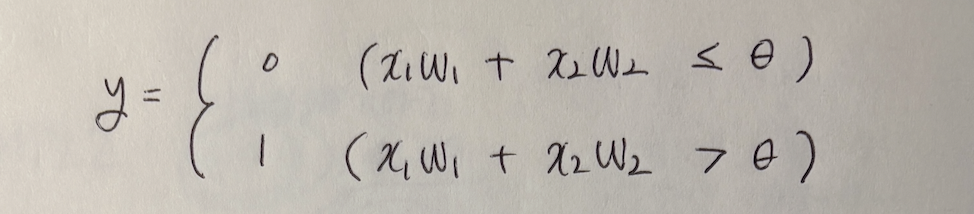 y = { 0 (x₁w₁ + x₂w₂ ≤ θ)
1 (x₁w₁ + x₂w₂ > θ)